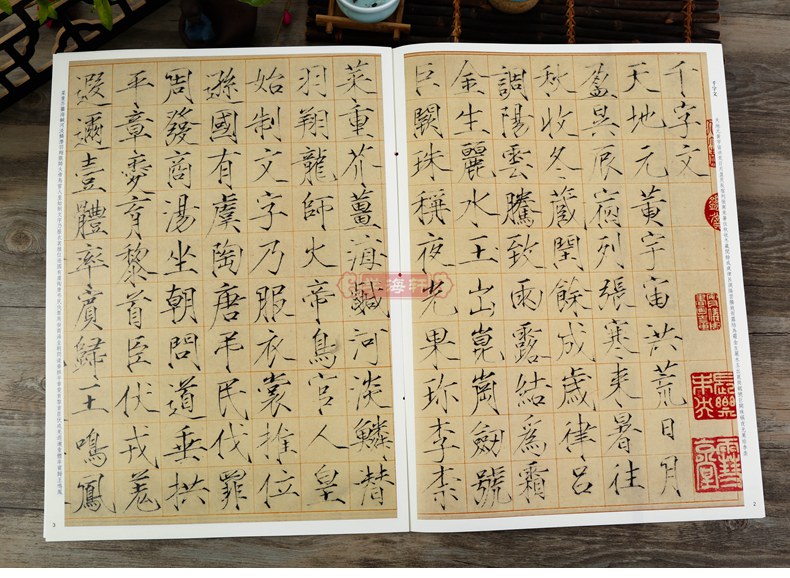 千字文
天地元黃宇宙洪荒日月
盈昃辰宿列張寒来暑往
秋收冬藏閏餘成歲律吕
調陽雲騰致雨露結爲霜
金生麗水玉出崑崗劍號
巨闕珠稱夜光果珍李柰
菜重芥薑海鹹河淡鱗潛
羽翔龍師火帝鳥官人皇
始制文字乃服衣裳推位
遜國有虞陶唐弔民伐罪
周發商湯坐朝問道垂拱
平章愛育黎首臣伏戎羌
遐邇壹體率賓歸王鳴鳳
千字文
長樂未央
2
3